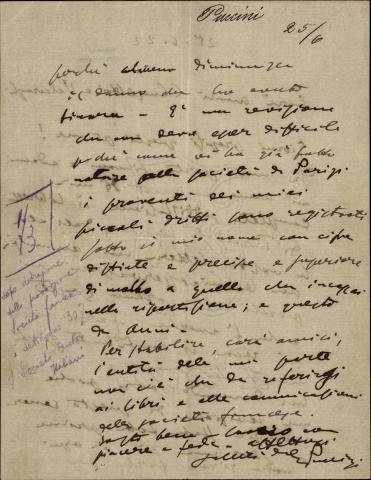 Puccini
25/6
perchè almeno diminuisca
il danno che ho avuto
finora – È una revisione
che non deve esser difficile
perchè come vi ho già fatto
notare alla società di Parigi
i proventi dei miei
piccoli diritti sono registrati
sotto il mio nome con cifre
distinte e precise e superiore
di molto a quello che incassai
nella ripartizione; e questo
da anni.
Per stabilire, cari amici,
l'entità della mia parte
non c'è che da riferirsi
ai libri e alle comunicazioni
della società francese.
piacere e fede affettuosi
dopo detrazione
della porzione
Società francese
e detrazione 30%
Società Autori
Italiani